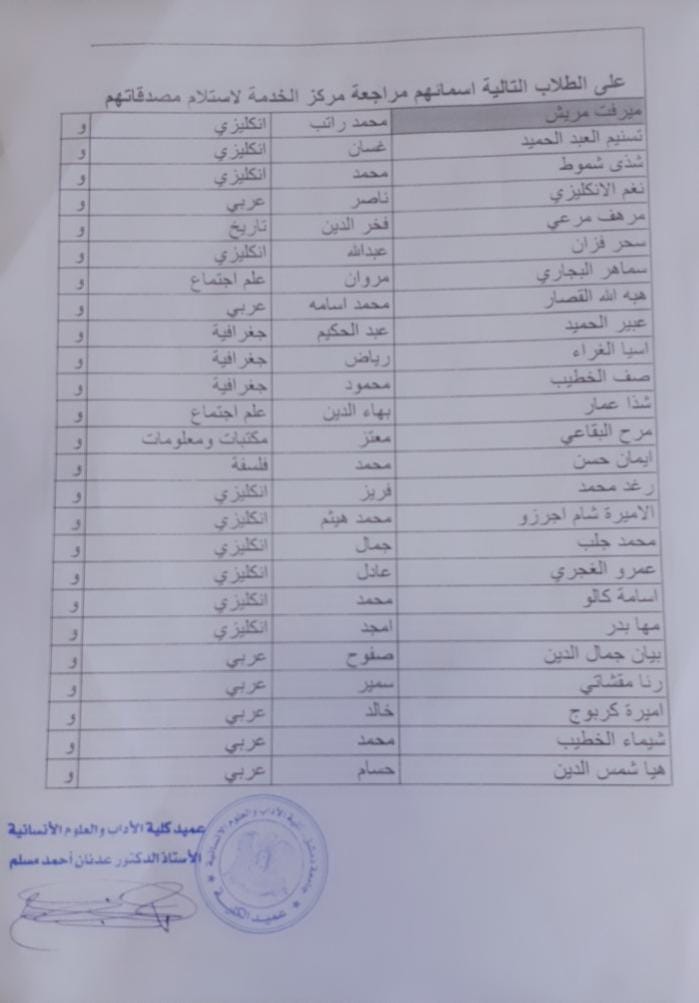 على الطلاب التالية اسمائهم مراجعة مركز الخدمة لاستلام مصدقاتهم
ميرفت مريش محمد راتب انكليزي و
تسنيم العبد الحميد غسان انكليزي و
شذى شموط محمد انكليزي و
نغم الانكليزي ناصر عربي و
مرهف مرعي فخر الدين تاريخ و
سحر فزان عبدالله انكليزي و
سماهر البجاري مروان علم اجتماع و
هبه الله القصار محمد اسامه عربي و
عبير الحميد عبد الحكيم جغرافية و
اسيا الغراء رياض جغرافية و
صف الخطيب محمود جغرافية و
شذا عمار بهاء الدين علم اجتماع و
مرح البقاعي معتز مكتبات ومعلومات و
ايمان حسن محمد فلسفة و
رغد محمد فريز انكليزي و
الاميرة شام اجرزو محمد هيثم انكليزي و
محمد جلب جمال انكليزي و
عمرو الغجري عادل انكليزي و
اسامة كالو محمد انكليزي و
مها بدر امجد انكليزي و
بيان جمال الدين صفوح عربي و
رنا مقشاتي سمير عربي و
اميرة كربوج خالد عربي و
شيماء الخطيب محمد عربي و
هيا شمس الدين حسام عربي و
عميد كلية الآداب والعلوم الأنسانية
الأستاذ الدكتور عدنان أحمد مسلم
جامعة دمشق كلية الآداب والعلوم الأنسانية
عميد الكلية